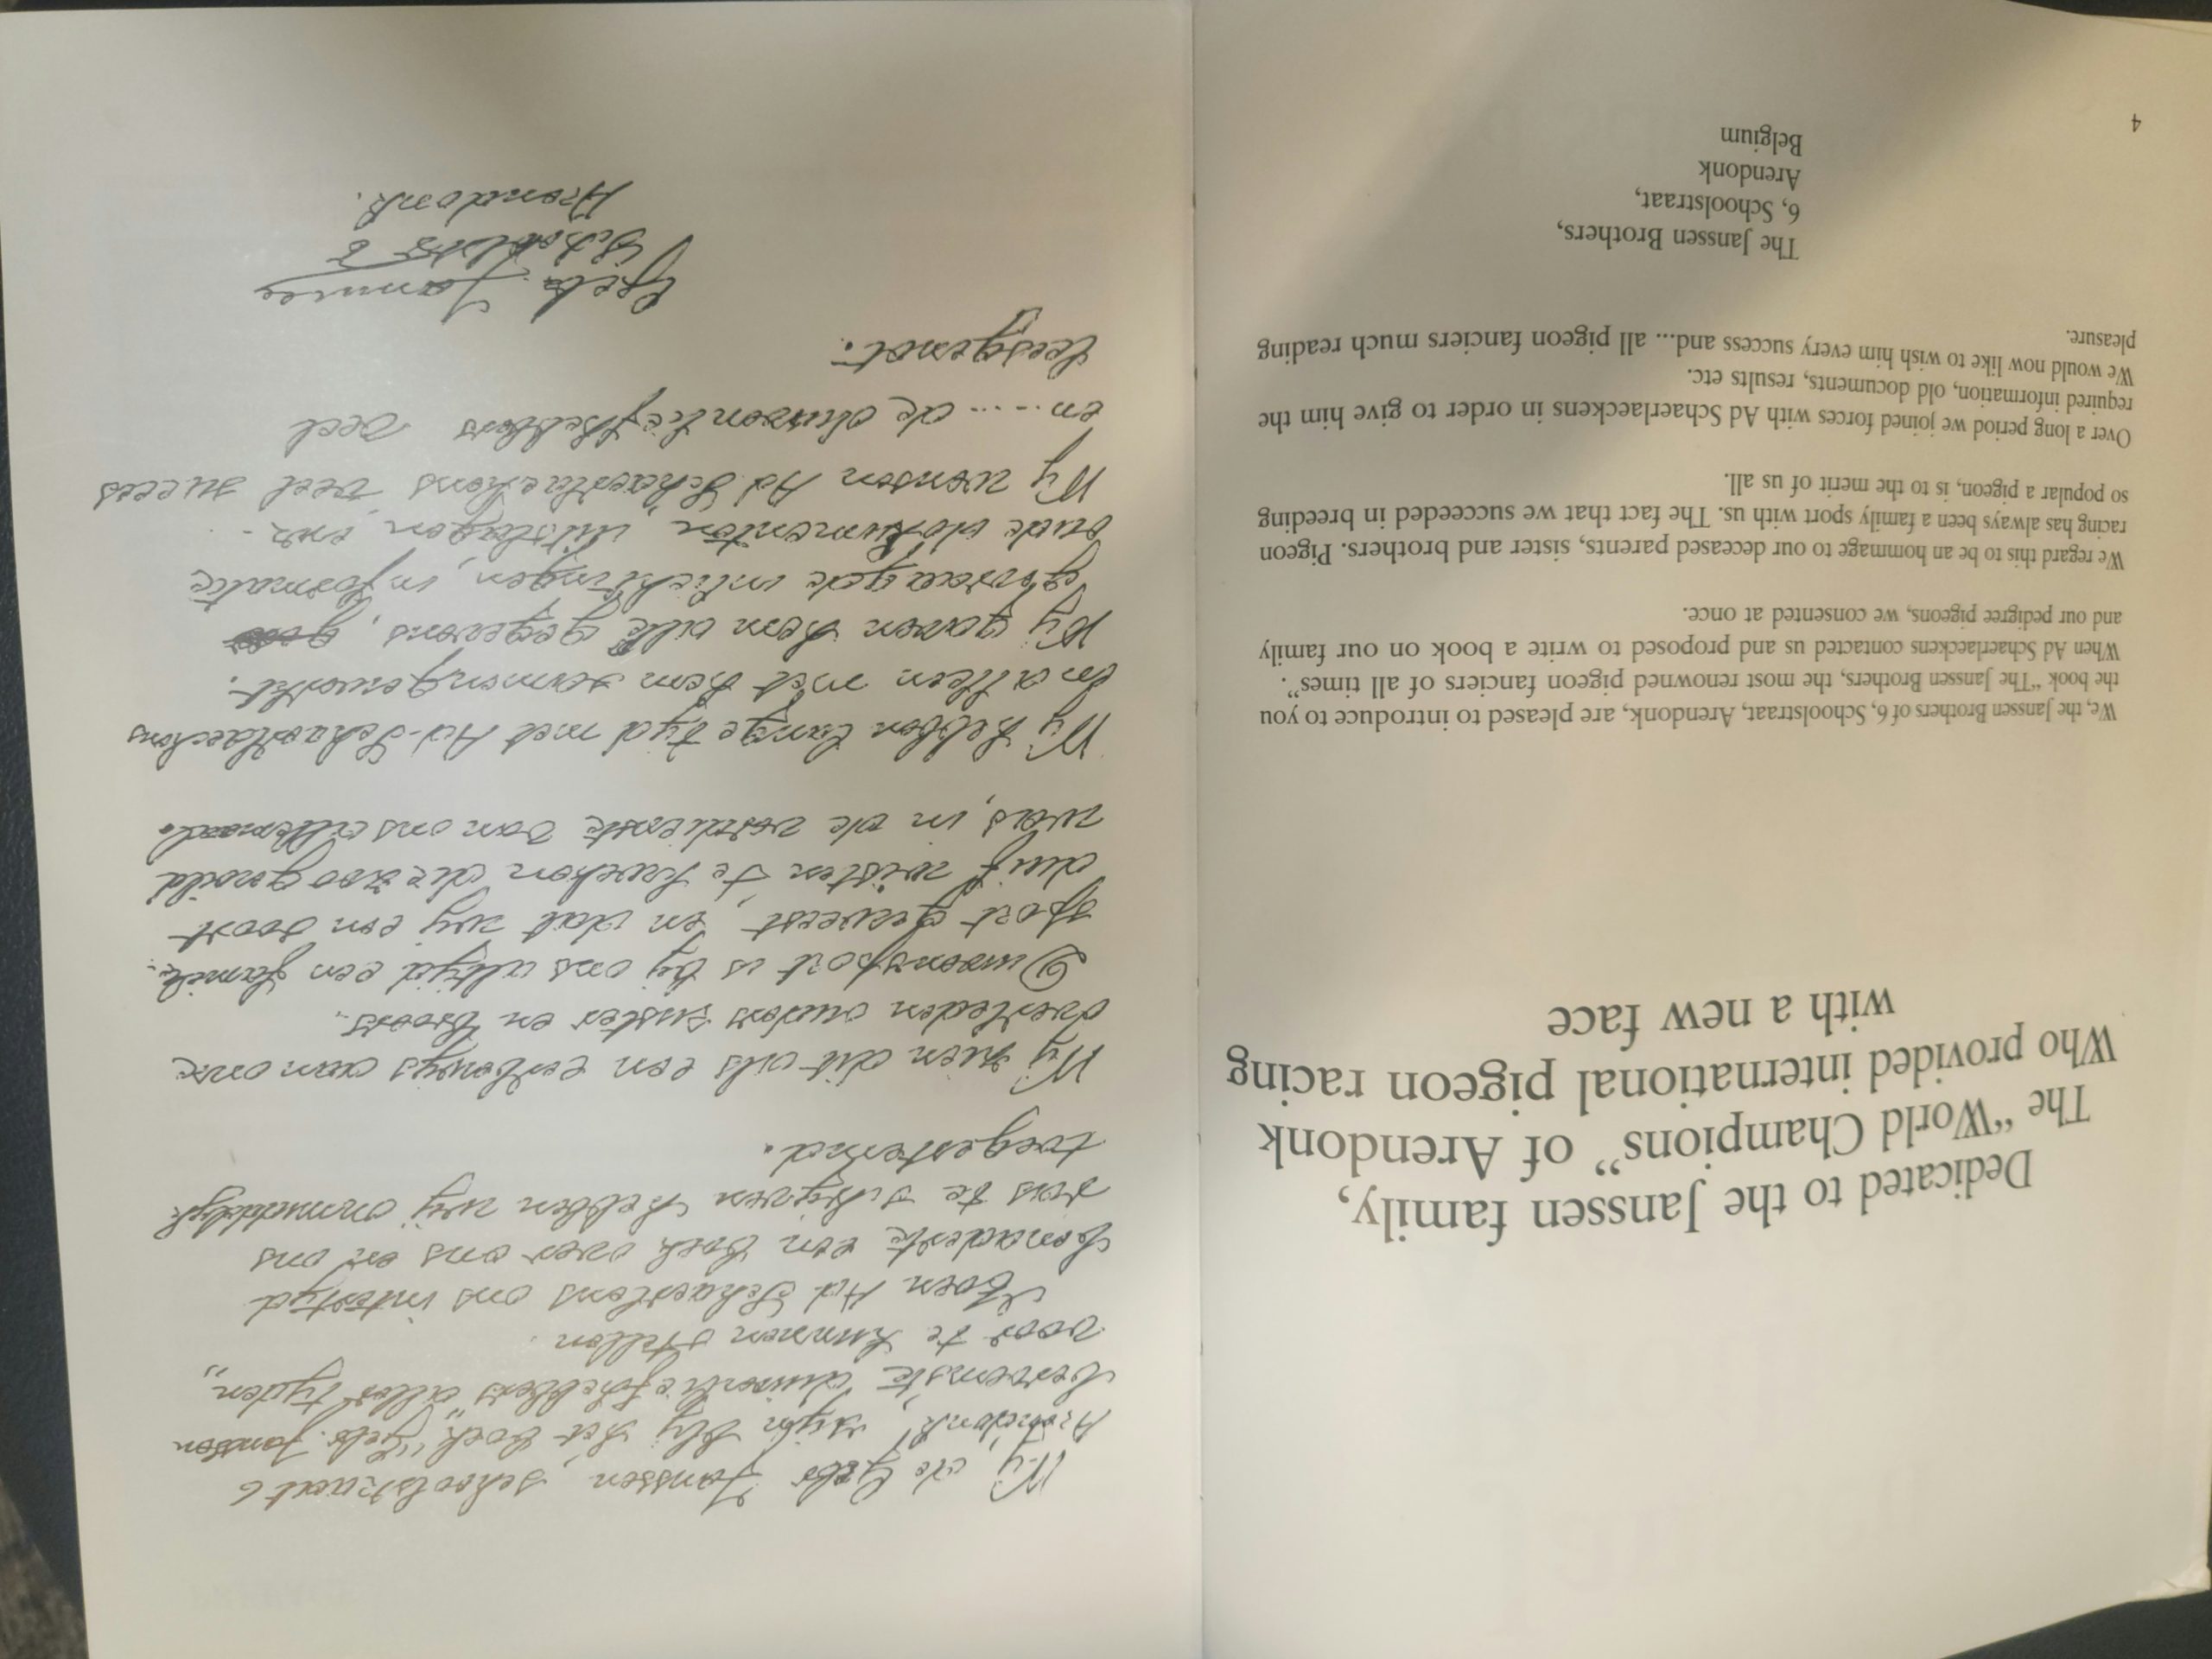 Dedicated to the Janssen family,
The “World Champions” of Arendonk
Who provided international pigeon racing
with a new face
We, the Janssen Brothers of 6, Schoolstraat, Arendonk, are pleased to introduce to you
the book “The Janssen Brothers, the most renowned pigeon fanciers of all times”.
When Ad Schaerlaeckens contacted us and proposed to write a book on our family
and our pedigree pigeons, we consented at once.
We regard this to be an hommage to our deceased parents, sister and brothers. Pigeon
racing has always been a family sport with us. The fact that we succeeded in breeding
so popular a pigeon, is to the merit of us all.
Over a long period we joined forces with Ad Schaerlaeckens in order to give him the
required information, old documents, results etc.
We would now like to wish him every success and... all pigeon fanciers much reading
pleasure.
The Janssen Brothers,
6, Schoolstraat,
Arendonk
Belgium
4
Wij de Gebr Janssen, schoolstraat 6
Arendonk, zijn blij het boek „Gebr. Janssen
beroemste duivenliefhebbers aller tyden„
voor te kunnen stellen.
Toen Ad Schaerlaekens ons indertyd
benaderde een boek over ons en ons
ras te schryven hebben wij onmiddelyk
toegestemd.
Wij zien dit als een eerbewys aan onze
overleden ouders zuster en broers.
Duivensport is by ons altyd een familie-
sport geweest, en dat wy een soort
duif wisten te kweken die zoo gewild
was, is de verdienste van ons allemaal.
Wij hebben lange tyd met Ad Schaerlaeckens
en alleen met hem samengewerkt.
Wij gaven hem alle gegevens,
gevraagde inlichtingen, informatie
oude dokumenten, uitslagen, enz.
Wij wensen Ad Schaerlaekens veel succes
en .... de duivenliefhebbers veel
leesgenot.
Gebr. Janssen
Schoolstr 6
Arendonk.